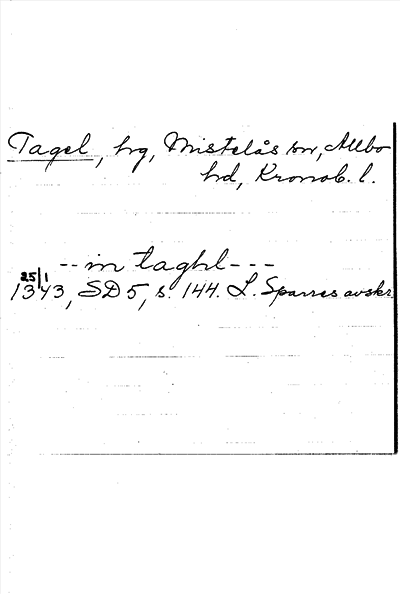 Tagel, hrg, Mistelås sn, Allbo
hd, Kronob. l.
-- in taghl ---
25/1
1343, SD 5, s. 144. L. Sparres avskr.